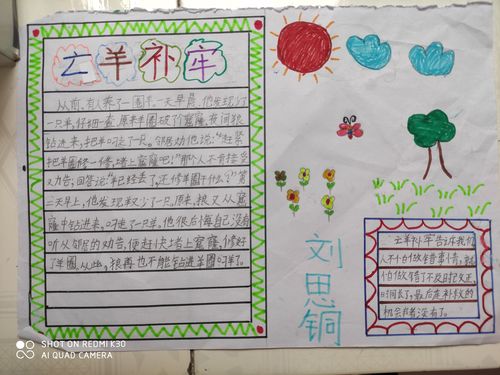 亡羊补牢
从前,有人养了一圈羊,一天早晨,他发现少了
一只羊,仔细一查,原来羊圈破了个窟窿,夜间狼
钻进来,把羊叼走了一只。邻居劝他说:"赶紧
把羊圈修一修,堵上窟窿吧!"那个人不肯接受
劝告,回答说:"羊已经丢了,还修羊圈干什么?"第
二天早上,他发现羊又少了一只,原来,狼又从窟
窿中钻进来,叼走了一只羊,他很后悔自己没有
听从邻居的劝告,便赶快堵上窟窿,修好
了羊圈,从此,狼再也不能钻进羊圈叼羊了。
刘思铜
亡羊补牢告诉我们
人不怕做错事情,就
怕做错了不及时改正,
时间长了,最后连补救的
机会都没有了。
SHOT ON REDMI K30
AI QUAD CAMERA